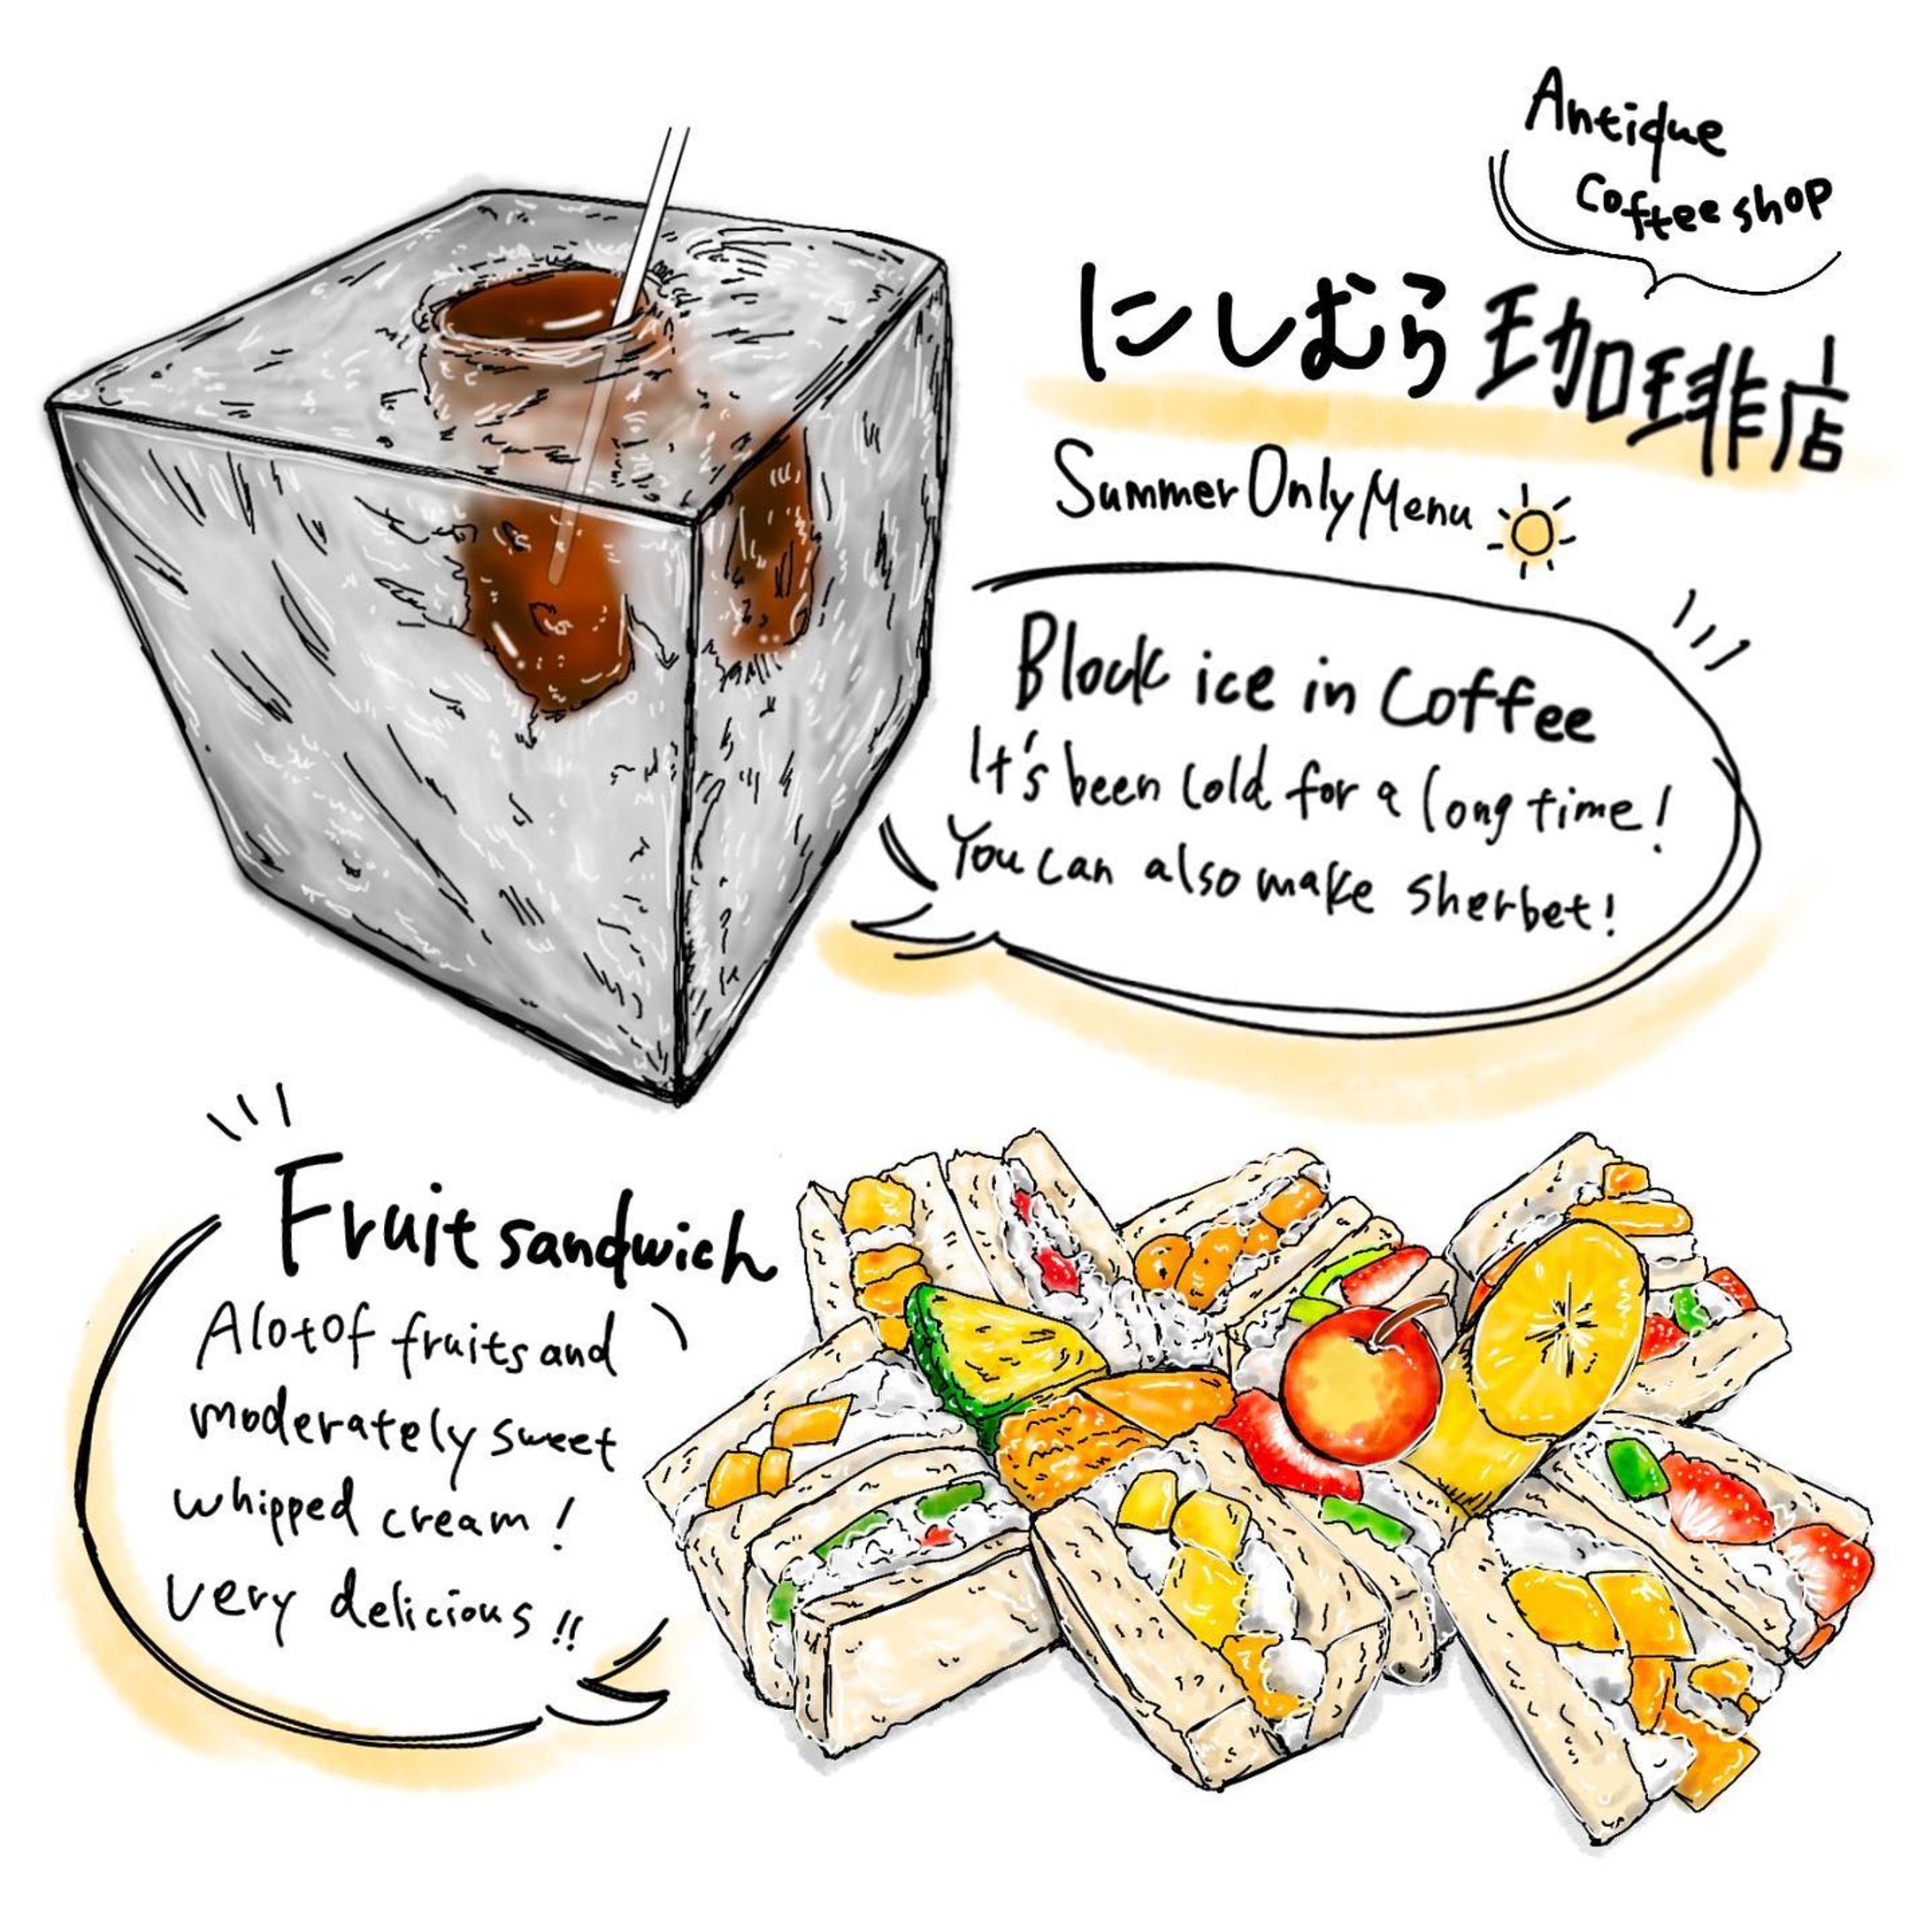 Antique
Coffee shop
にしむら珈琲店
Summer Only Menu
Block ice in Coffee
It's been cold for a long time!
You can also make sherbet!
Fruit sandwich
A lot of fruits and
moderately sweet
whipped cream!
very delicious!!